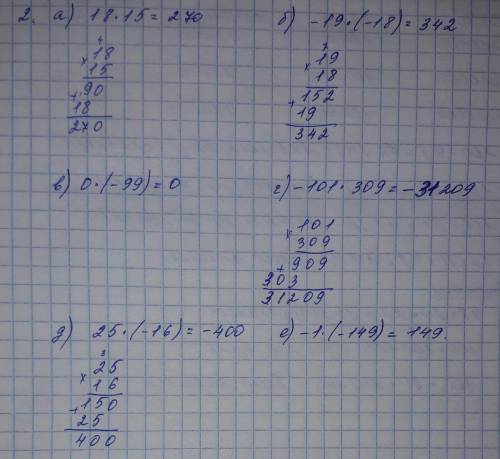 2. а) 18·15=270
4
×18
15
+90
18
270
б) -19·(-18)=342
7
×19
18
+152
19
342
в) 0·(-99)=0
г) -101·309=-31209
×101
309
+909
303
31209
д) 25·(-16)=-400
3
×25
16
+150
25
400
е) -1·(-149)=149.